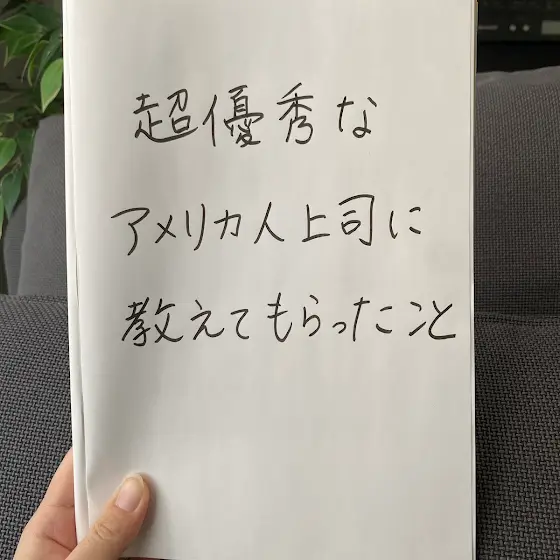 超優秀な
アメリカ人上司に
教えてもらったこと